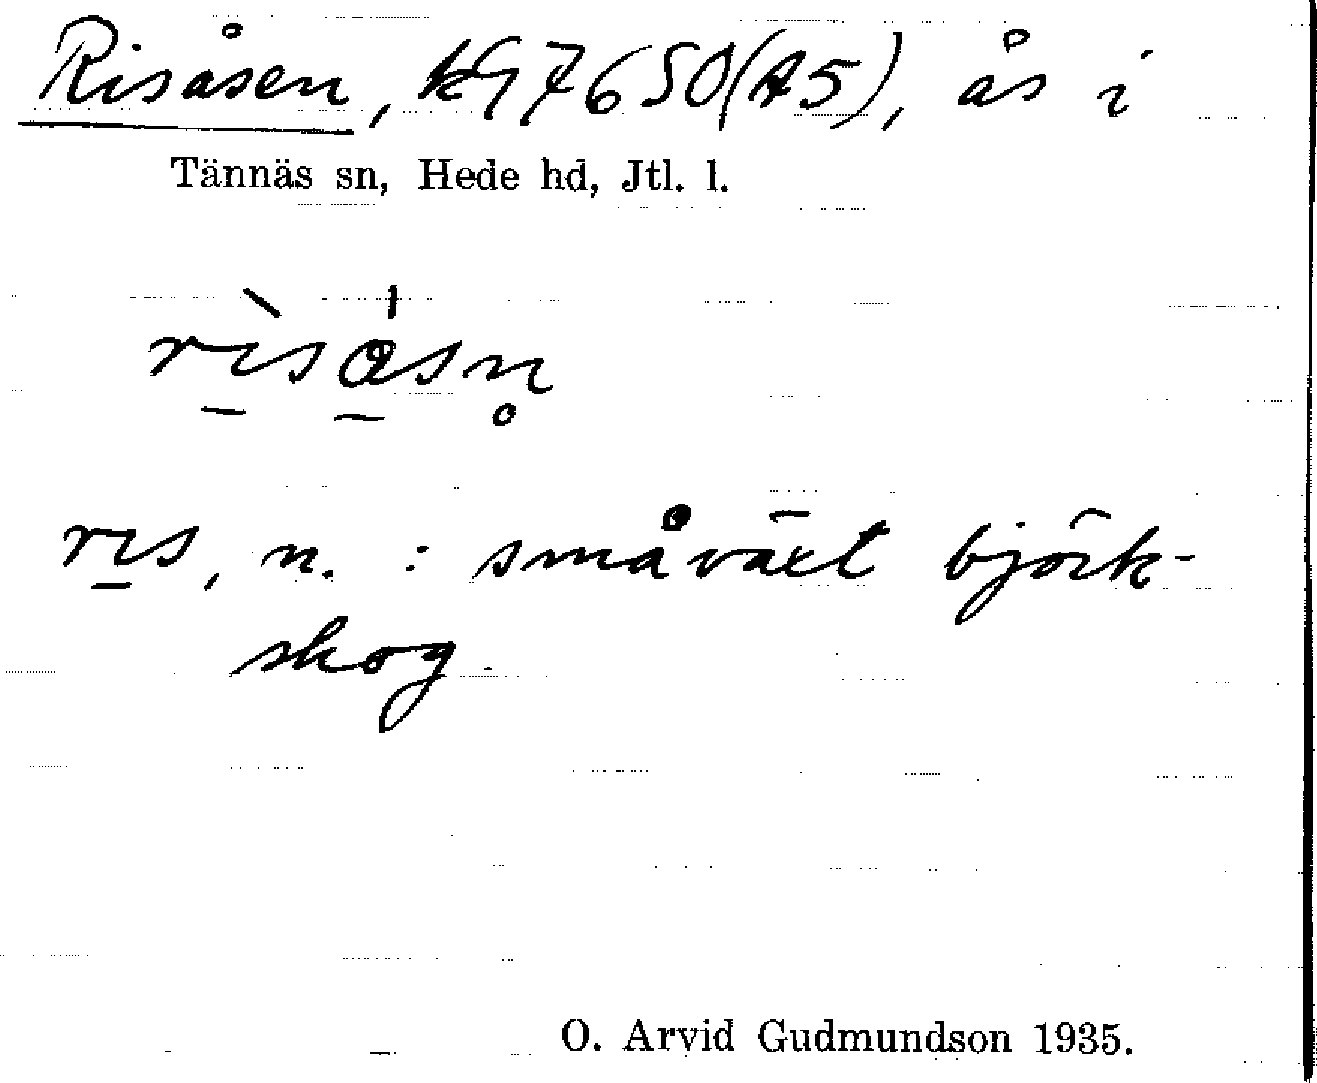 Risåsen, kg 7650 (A5), ås i
Tännäs sn, Hede hd, Jtl. l.
rìsåsn̥
ris, n. : småväxt björk-
skog
O. Arvid Gudmundson 1935.